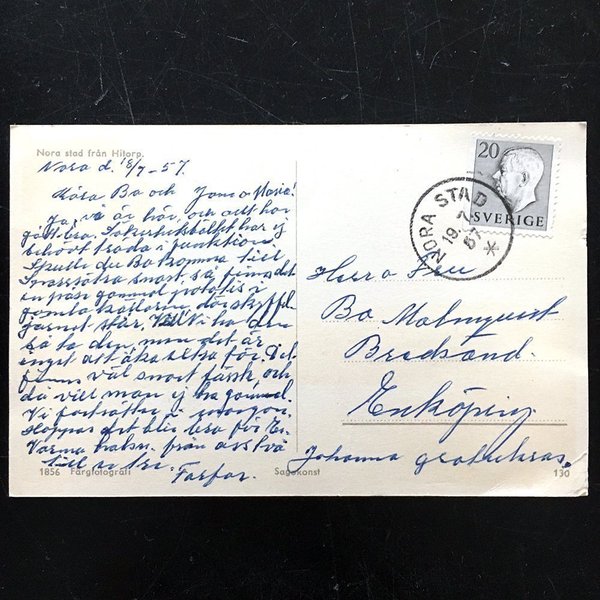 Nora stad från Hitorp.
Nora d. 18/7 -57.
Kära Bo och Jom o Marie!
Ja, vi är här, och allt har
gått bra. Säkerhetsbältet har ej
behövt träda i funktion.
Skulle du Bo komma till
snart, så finns det
en påse gammal potatis i
gamla där skyffel
garnet står. Vill Vi ha den
så ta den, men det är
inget att åka extra för. Det
finns väl snart färsk, och
då vill man ej ha gammal.
Vi fortsätter i morgon.
Hoppas det blir bra för Er.
Varma hälsn. från oss två
till er tre.
Farfar.
20
SVERIGE
NORA STAD
19 7
57
Herr o Fru
Bo Malmquist
Bredsand.
Enköping
Johanna gratuleras.
1856 Färgfotografi
Sagokonst
130